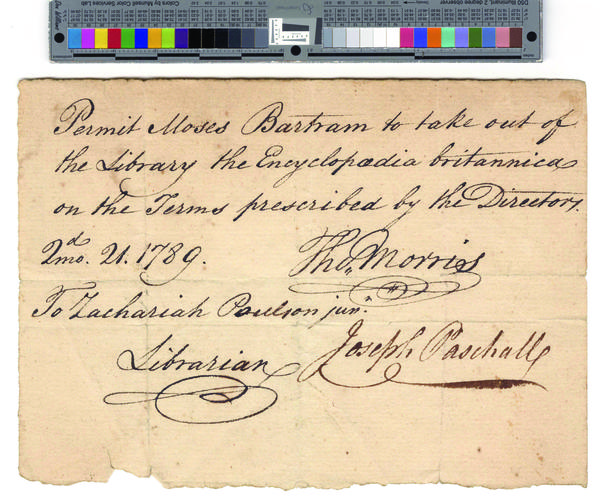 Permit Moses Bartram to take out of
the Library the Encyclopædia britannica
on the Terms prescribed by the Directors.
2d mo. 21. 1789. Thos. Morris
To Zachariah Poulson junr.
Librarian Joseph Paschall